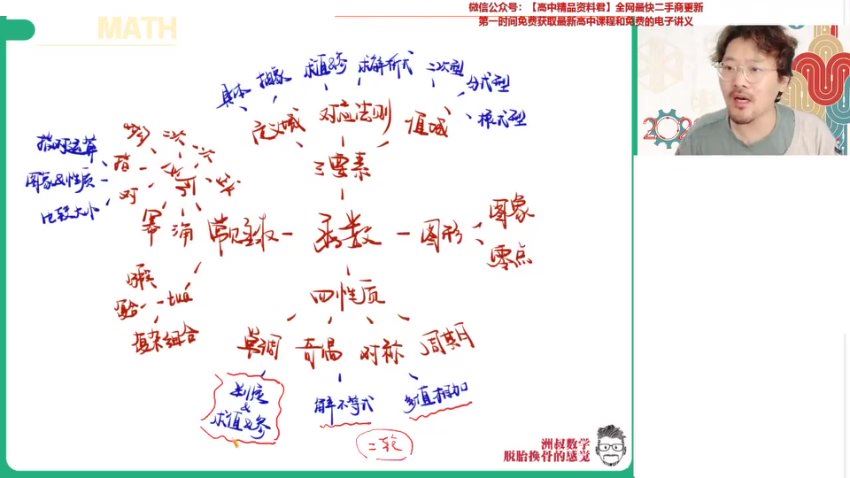 微信公众号：【高中精品资料君】全网最快二手商更新
第一时间免费获取最新高中课程和免费的电子讲义
MATH
具体 抽象 求值&参 求解析式 二次型
分式型
根式型
定义域 对应法则 值域
三要素
指对运算
图象及性质
比较大小
一次 二次
指
对
幂
常见函数 函数 图形
图象
零点
四性质
复杂组合
单调 奇偶 对称 周期
判定
&
求值&参
解不等式
多值相加
二轮
洲叔数学
脱胎换骨的感觉
202